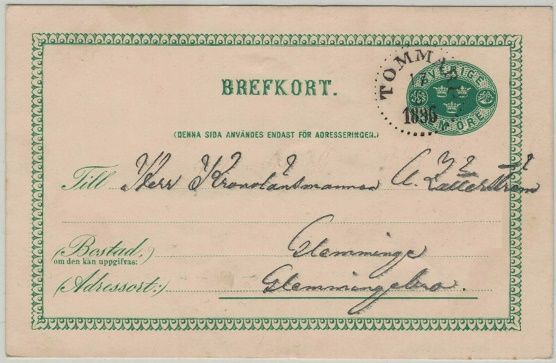 BREFKORT.
SVERIGE
FEM ÖRE
TOMM
1896
(DENNA SIDA ANVÄNDES ENDAST FÖR ADRESSERINGEN.)
Till Herr Kronolänsmannen A.
(Bostad:)
om den kan uppgifvas:
Glemminge
(Adressort:) Glemmingebro.